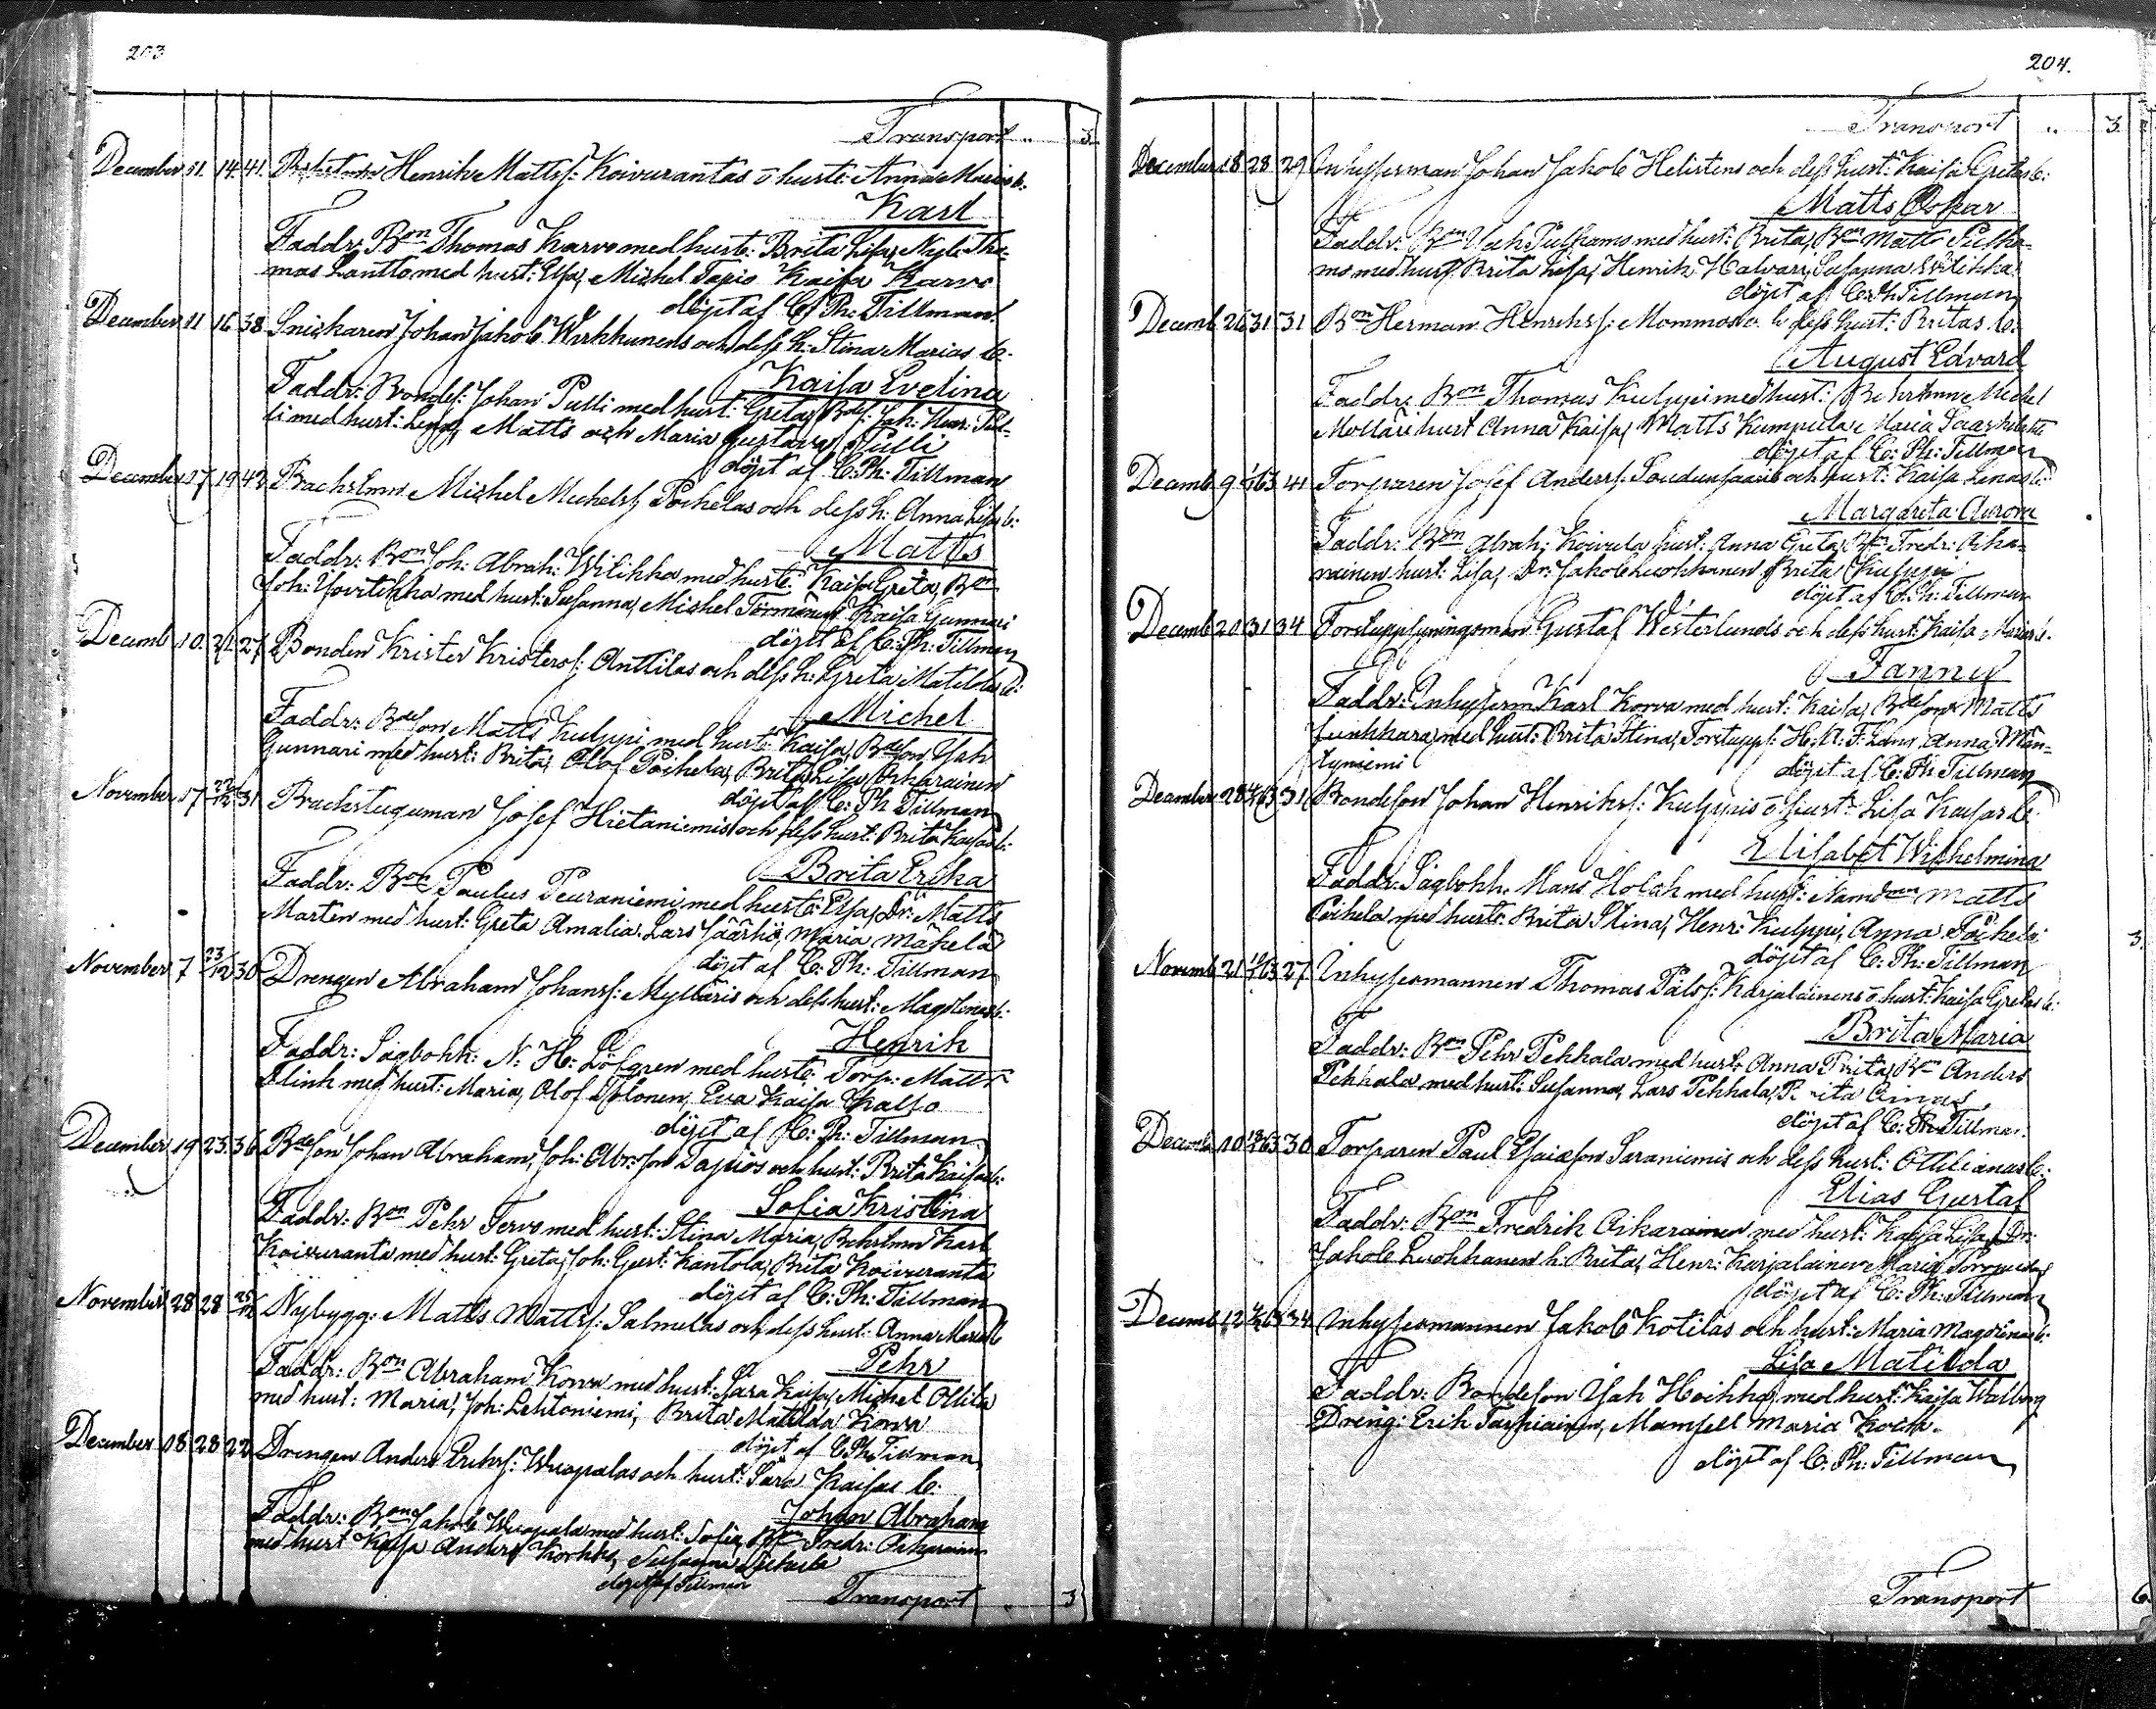 203
Transport .. 3.
December 11. 14 41. Henrik Mattss: Koivurantas o hustr: Anna Marias b:
Karl
Faddr: Bon Thomas Karvo med hustr: Brita Lisa, Nyb: Tho-
mas Lantto med hust: Elsa, Michel Tapio Kaisa Karvo
döpt af C: Ph: Tillman.
December 11 16 38 Snickaren Johan Jakob Wirkkunens och dess h: Stina Marias b:
Kaisa Evelina
Faddr: Bondes: Johan Pulli med hust: Greta, Bdes: Joh: Henr: Pul-
li med hust: Lena, Matts och Maria Gustava Pulli
döpt af C: Ph: Tillman
December 17 19 42 Backstmn Michel Michelss: Poikelas och dess h: Anna Lisas b:
Matts
Faddr: Bon Joh: Abrah: Wilikka med hustr: Kaisa Greta, Bon
Joh: med hust: Susanna, Michel Törmänen Kaisa Gunnari
döpt af C: Ph: Tillman
Decemb 10. 21. 27 Bonden Krister Kristerss: Anttilas och dess h: Greta Matildas b:
Michel
Faddr: Bdeson Matts Kulppi med hustr: Kaisa, Bdeson Isak
Gunnari med hust: Brita, Olof Poikela, Brita Lisa Oikarainen
döpt af C: Ph Tillman
November 17 22/12 31 Backstuguman Josef Hietaniemis och dess hust: Brita Kaisas b:
Brita Erika
Faddr: Bon Paulus Peuraniemi med hustr: Elsa, Dr: Matts
Marten med hust: Greta Amalia. Lars Jäärkö, Maria Mäkelä
döpt af C: Ph: Tillman
November 7 23/12 30 Drengen Abraham Johanss: Mylläris och dess hust: Magdlenas b:
Henrik
Faddr: Sågbokh: N: H: Löfgren med hustr: Torp: Matts
Flink med hust: Maria, Olof Ylönen, Eva Kaisa Kallo
döpt af C: Ph: Tillman
December 19 23. 36 Bdeson Johan Abraham, Joh: Abr:son Tapios och hust: Brita Kaisas b:
Sofia Kristina
Faddr: Bon Pehr Tervo med hust: Stina Maria, Bckstmn Karl
Koivuranta med hust: Greta, Joh: Gust: Kantola, Brita Koivuranta
döpt af C: Ph: Tillman
November 28 28 25/12 Nybygg: Matts Mattss: Salmelas och dess hust: Anna Marias b
Pehr
Faddr: Bon Abraham Korva med hust: Sara Kaisa, Michel Ollila
med hust: Maria, Joh: Lehtoniemi, Brita Matilda Korva
döpt af C: Ph: Tillman
December 18 28 22 Drengen Anders Erikss: Wuopalas och hust: Sara Kaisas b:
Johan Abraham
Faddr: Bon Jakob Wuopala med hust: Sofia, Bon Fredr: Oikarainen
med hust Kaisa Anders Korkko, Susanna
döpt af Tillman
Transport .. 3
204.
Transport .. 3
December 18 28 29 Inhysesman Johan Jakob Helistens och dess hust: Kaisa Gretas b:
Matts Oskar
Faddr: Bon Isak Pulkamo med hust: Brita, Bon Matts Pulka-
mo med hust: Brita Lisa, Henrik Halvari, Susanna Wilikka
döpt af C: Ph Tillman
Decemb. 26 31 31 Bon Herman Henrikss: Mommos o dess hust: Britas b:
August Edvard
Faddr: Bon Thomas Kulppi med hust: Bckstmn Michel
Mollari hust Anna Kaisa, Matts Kumpula Maria
döpt af C: Ph: Tillman
Decemb. 9 1/1 63 41 Torparen Josef Anderss: Soudunsaaris och hust: Kaisa Lenas b:
Margareta Aurora
Faddr: Bon Abrah: Koivula hust: Anna Greta, Bon Fredr: Oika-
rainen hust: Lisa, Dr: Jakob Luokkanen Brita Kulppi
döpt af C: Ph: Tillman
Decemb 20 31 34 Forstuppsyningsman Gustaf Westerlunds och dess hust: Kaisa Marias b.
Fanny
Faddr: Inhysesm: Karl Korva med hust: Kaisa, Bdeson Matts
Junkkara med hust: Brita Stina, Forstupps: H: A: F: Lang Anna Män-
tyniemi
döpt af C: Ph Tillman
December 28 63 31 Bondeson Johan Henrikss: Kulppis o hustr: Lisa Kaisas b:
Elisabet Wilhelmina
Faddr: Sågbokh. Hans Holck med hust: Nämdmn Matts
Poikela med hustr: Brita Stina, Henr: Kulppi, Anna Poikela
döpt af C: Ph: Tillman
3.
Novemb 21 63 27 Inhysesmannen Thomas Pålss: Karjalainens o hust: Kaisa Gretas b:
Brita Maria
Faddr: Bon Pehr Pekkala med hust: Anna Brita, Bon Anders
Pekkala med hust: Susanna, Lars Pekkala,
döpt af C: Ph: Tillman.
Decemb 10 63 30 Torparen Paul Esaiason Saraniemis och dess hust: Ottilianas b:
Elias Gustaf
Faddr: Bon Fredrik Oikarainen med hust: Kaisa Lisa, Dr:
Jakob Luokkanen h: Brita, Henr: Karjalainen Maria
döpt af C: Ph: Tillman
Decemb 12 63 34 Inhysesmannen Jakob Kotilas och hust: Maria Magdlenas b:
Lisa Matilda
Faddr: Bondeson Isak Hoikka med hust: Kaisa Walborg
Dreng: Erik Tarkiainen, Mamsell Maria Koch.
döpt af C: Ph: Tillman
Transport 6